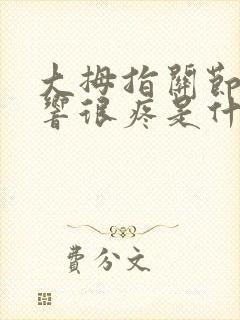 大拇指關節
響很疼是什
費分文